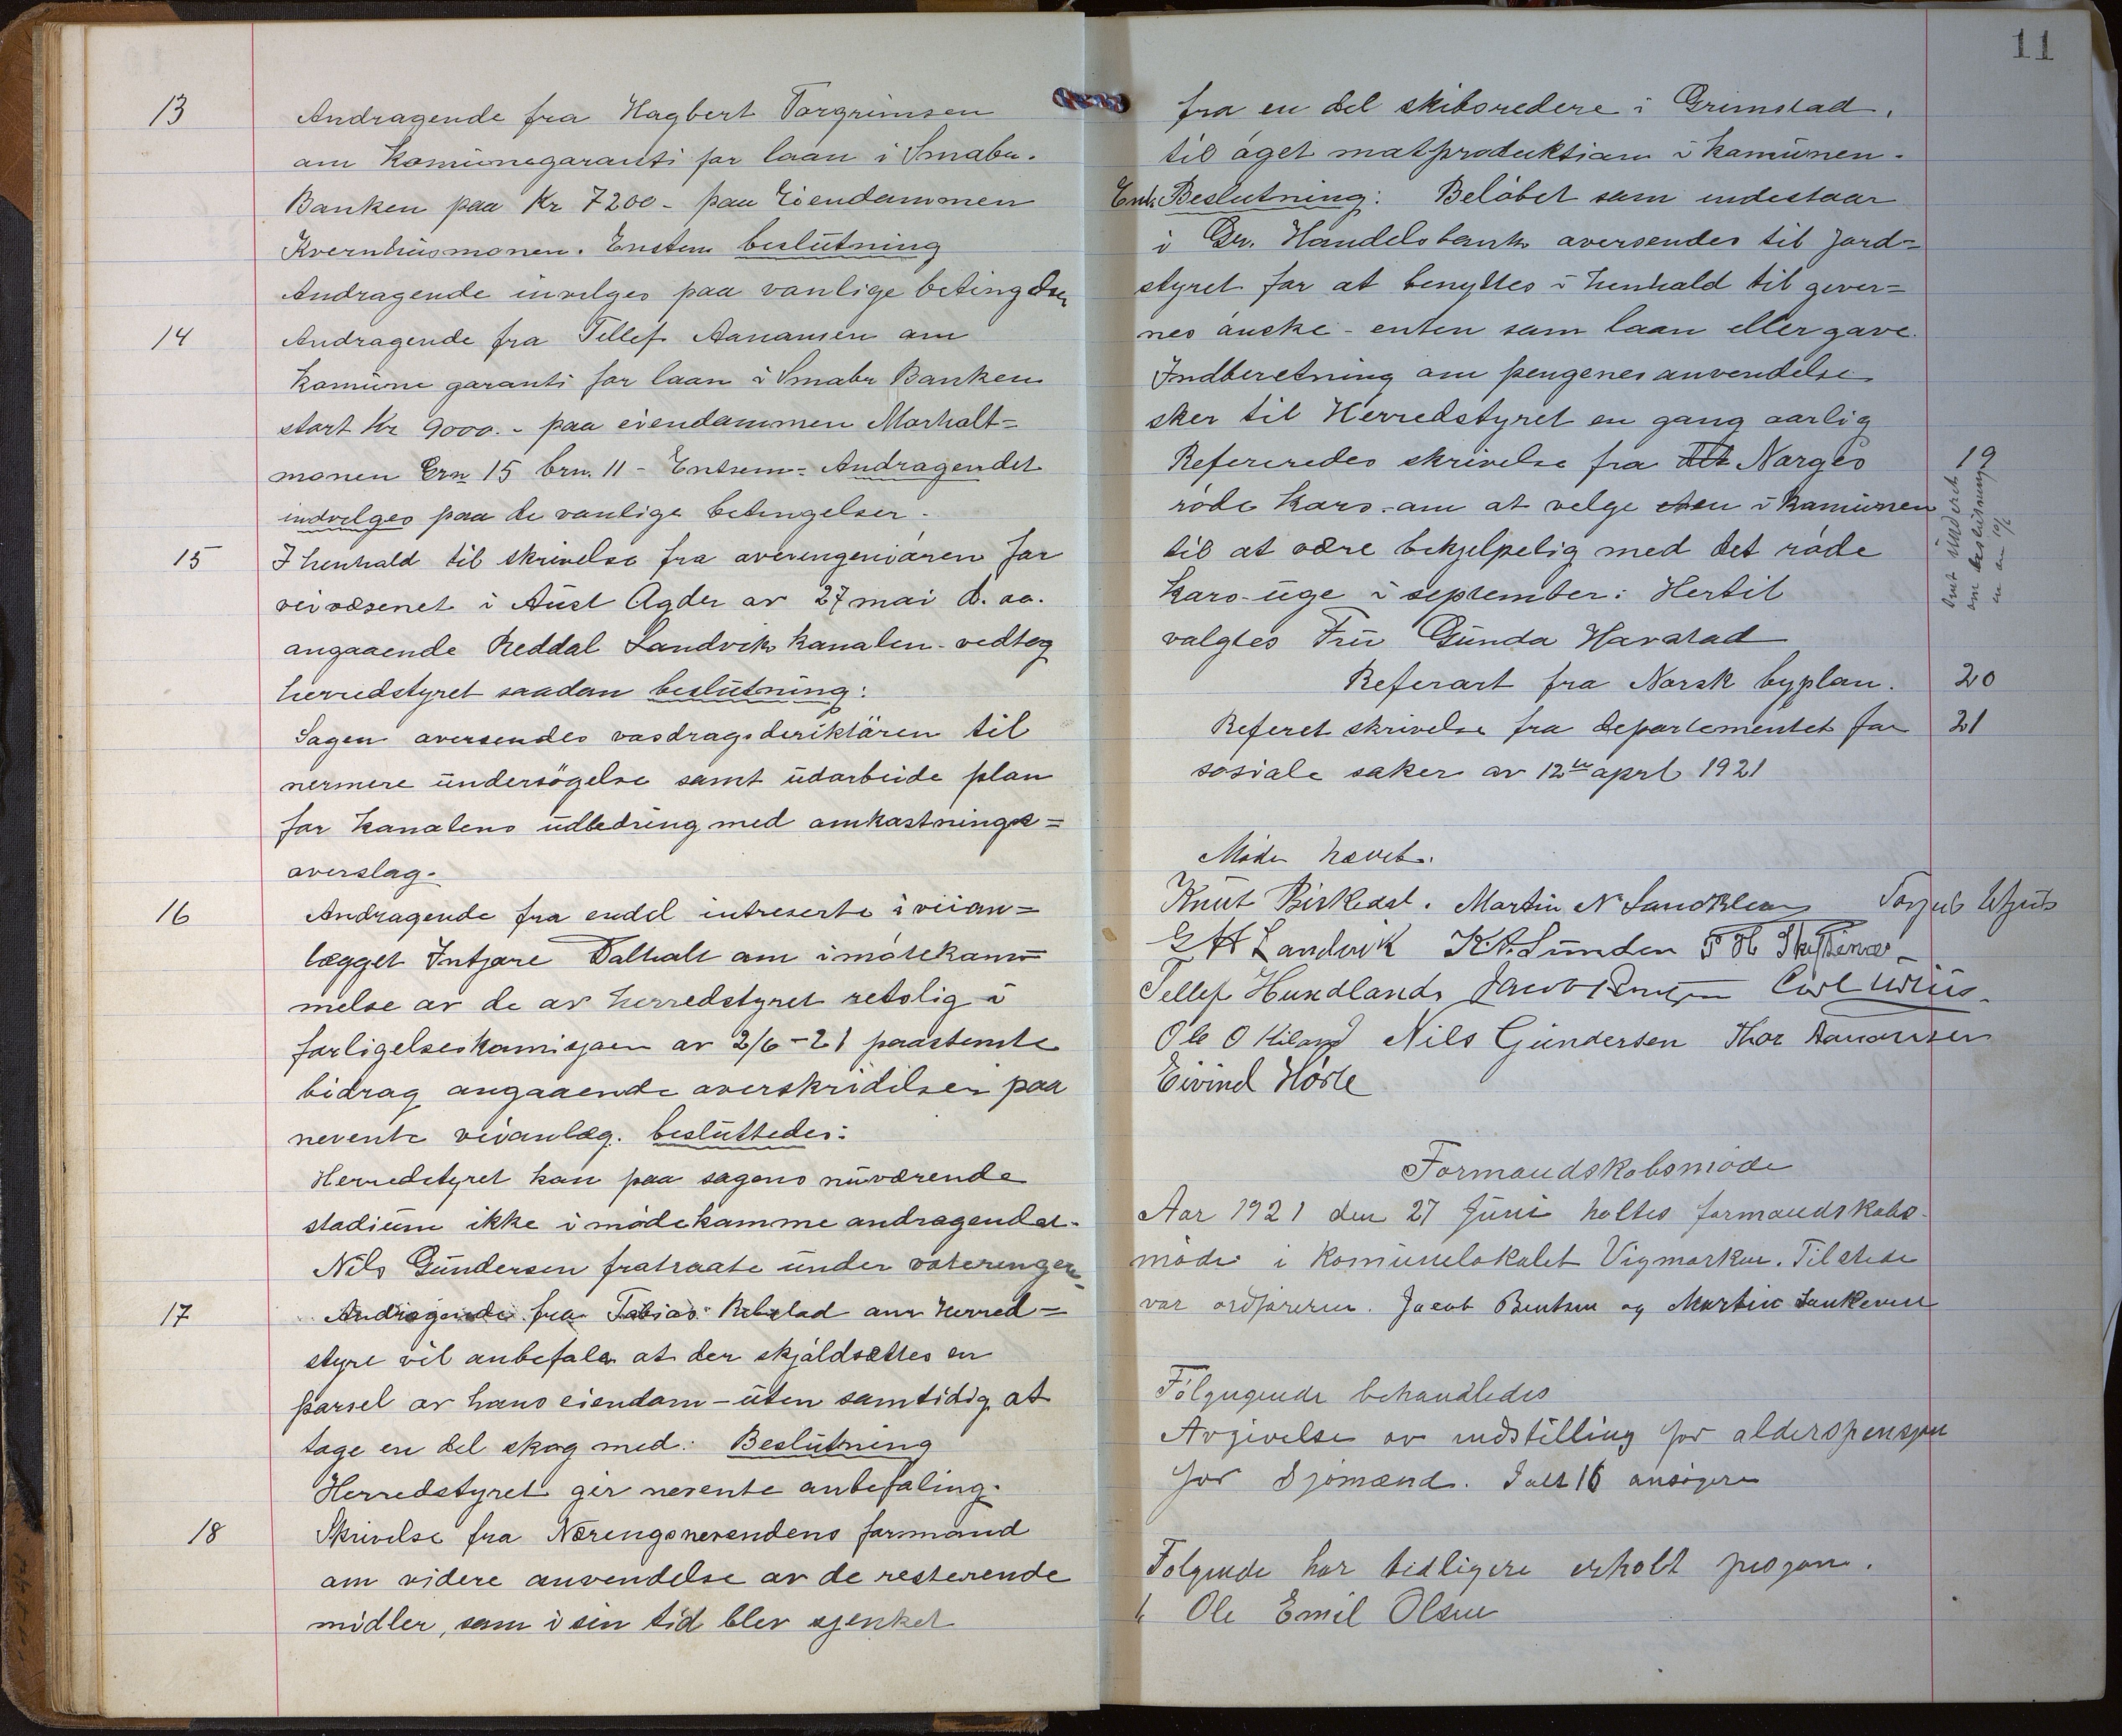 13 Andragende fra Hagbert Torgrimsen
om Komunegaranti for laan i Smabr.
Banken paa Kr 7200 - paa Eiendommen
Kvernhusmonen. Enstem beslutning
Andragende invilges paa vanlige betingelser
14 Andragende fra Tellef Aanansen om
komune garanti for laan i Smabr Banken
stort Kr 9000.- paa eiendommen Morholt=
monen Grn 15 brn. 11 - Enstem= Andragendet
indvilges paa de vanlige betingelser.
15 I henhold til skrivelse fra overingeniøren for
veivæsenet i Aust Agder av 27 mai d. aa.
angaaende Reddal Landviks kanalen - vedtog
herredstyret saadan beslutning:
Sagen oversendes vasdragsderiktören til
nermere undersögelse samt udarbeide plan
for kanalens udbedring med omkastnings=
overslag.
16 Andragende fra endel intreserte i veian=
lægget Intjore Dalholt om imötekom=
melse av de av herredstyret retslig i
forligelseskomisjoen av 2/6-21 paastemte
bidrag angaaende overskridelsen paa
nevente veianlæg. besluttedes:
Herredstyret kan paa sagens nuværende
stadium ikke imödekomme andragendet.
Nils Gundersen fratraate under voteringen
17 Andragende fra Tobias Rebstad om herred=
styre vil anbefale at der skjöldsættes en
parsel av hans eiendom - uten samtidig at
tage en del skog med: Beslutning
Herredstyret gir nevente anbefaling.
18 Skrivelse fra Næringsnevendens formand
om videre anvendelse av de resterende
midler, som i sin tid blev sjenket
11
fra en del skibsredere i Grimstad.
til öget matproduktion i komunen.
Enst. Beslutning: Belöbet som indestaar
i Gr. Handelsbank oversendes til Jord=
styret for at benyttes i henhold til giver=
nes önske - enten som laan eller gave.
Indberetning om pengenes anvendelse
sker til Herredstyret en gang aarlig
Refereredes skrivelse fra Norges 19
röde kors - om at velge en i komunen
til at være behjelpelig med det röde
kors-uge i september: Hertil
valgtes Fru Gunda Havstad
Referart fra Norsk byplan. 20
Referet skrivelse fra departementet for 21
sosiale saker av 12te aprl 1921
Möde hævet.
Knut Birkedal. Martin N Landkleiv
G H Landvik K.A. Sunden
Tellef Hundland Jacob Bentsen Carl
Ole O Kiland Nils Gundersen Thor Aanonsen
Eivind Hörte
Formandskabsmöde
Aar 1921 den 27 Juni holtes formandskabs-
möde i Komunelokalet Vigmarken. Tilstede
var ordföreren. Jacob Bentsen og Martin
Fölgngende behandledes
Avgivelse av indstilling for alderspensjon
for Sjömænd. Ialt 16 ansögere
Folgende har tidligere erholt
Ole Emil Olsen